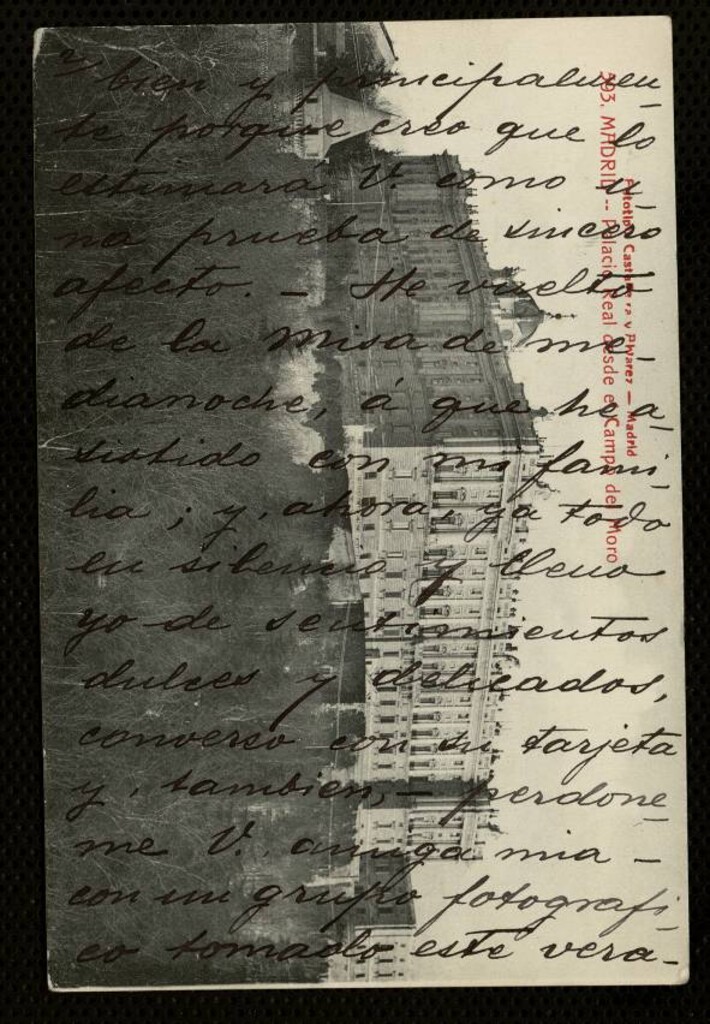 2) bien y principalmen-
te porque creo que lo
estimará V. como u-
na prueba de sincero
afecto. — He vuelto
de la misa de me-
dianoche, á que he a-
sistido con mi fami-
lia; y, ahora, ya todo
en silencio y lleno
yo de sentimientos
dulces y delicados,
converso con su tarjeta
y, tambien, — perdone-
me V. amiga mia —
con un grupo fotografi-
co tomado este vera-
593. MADRID -- Palacio Real desde el Campo del Moro
Fototipia Castañeira y Alvarez — Madrid